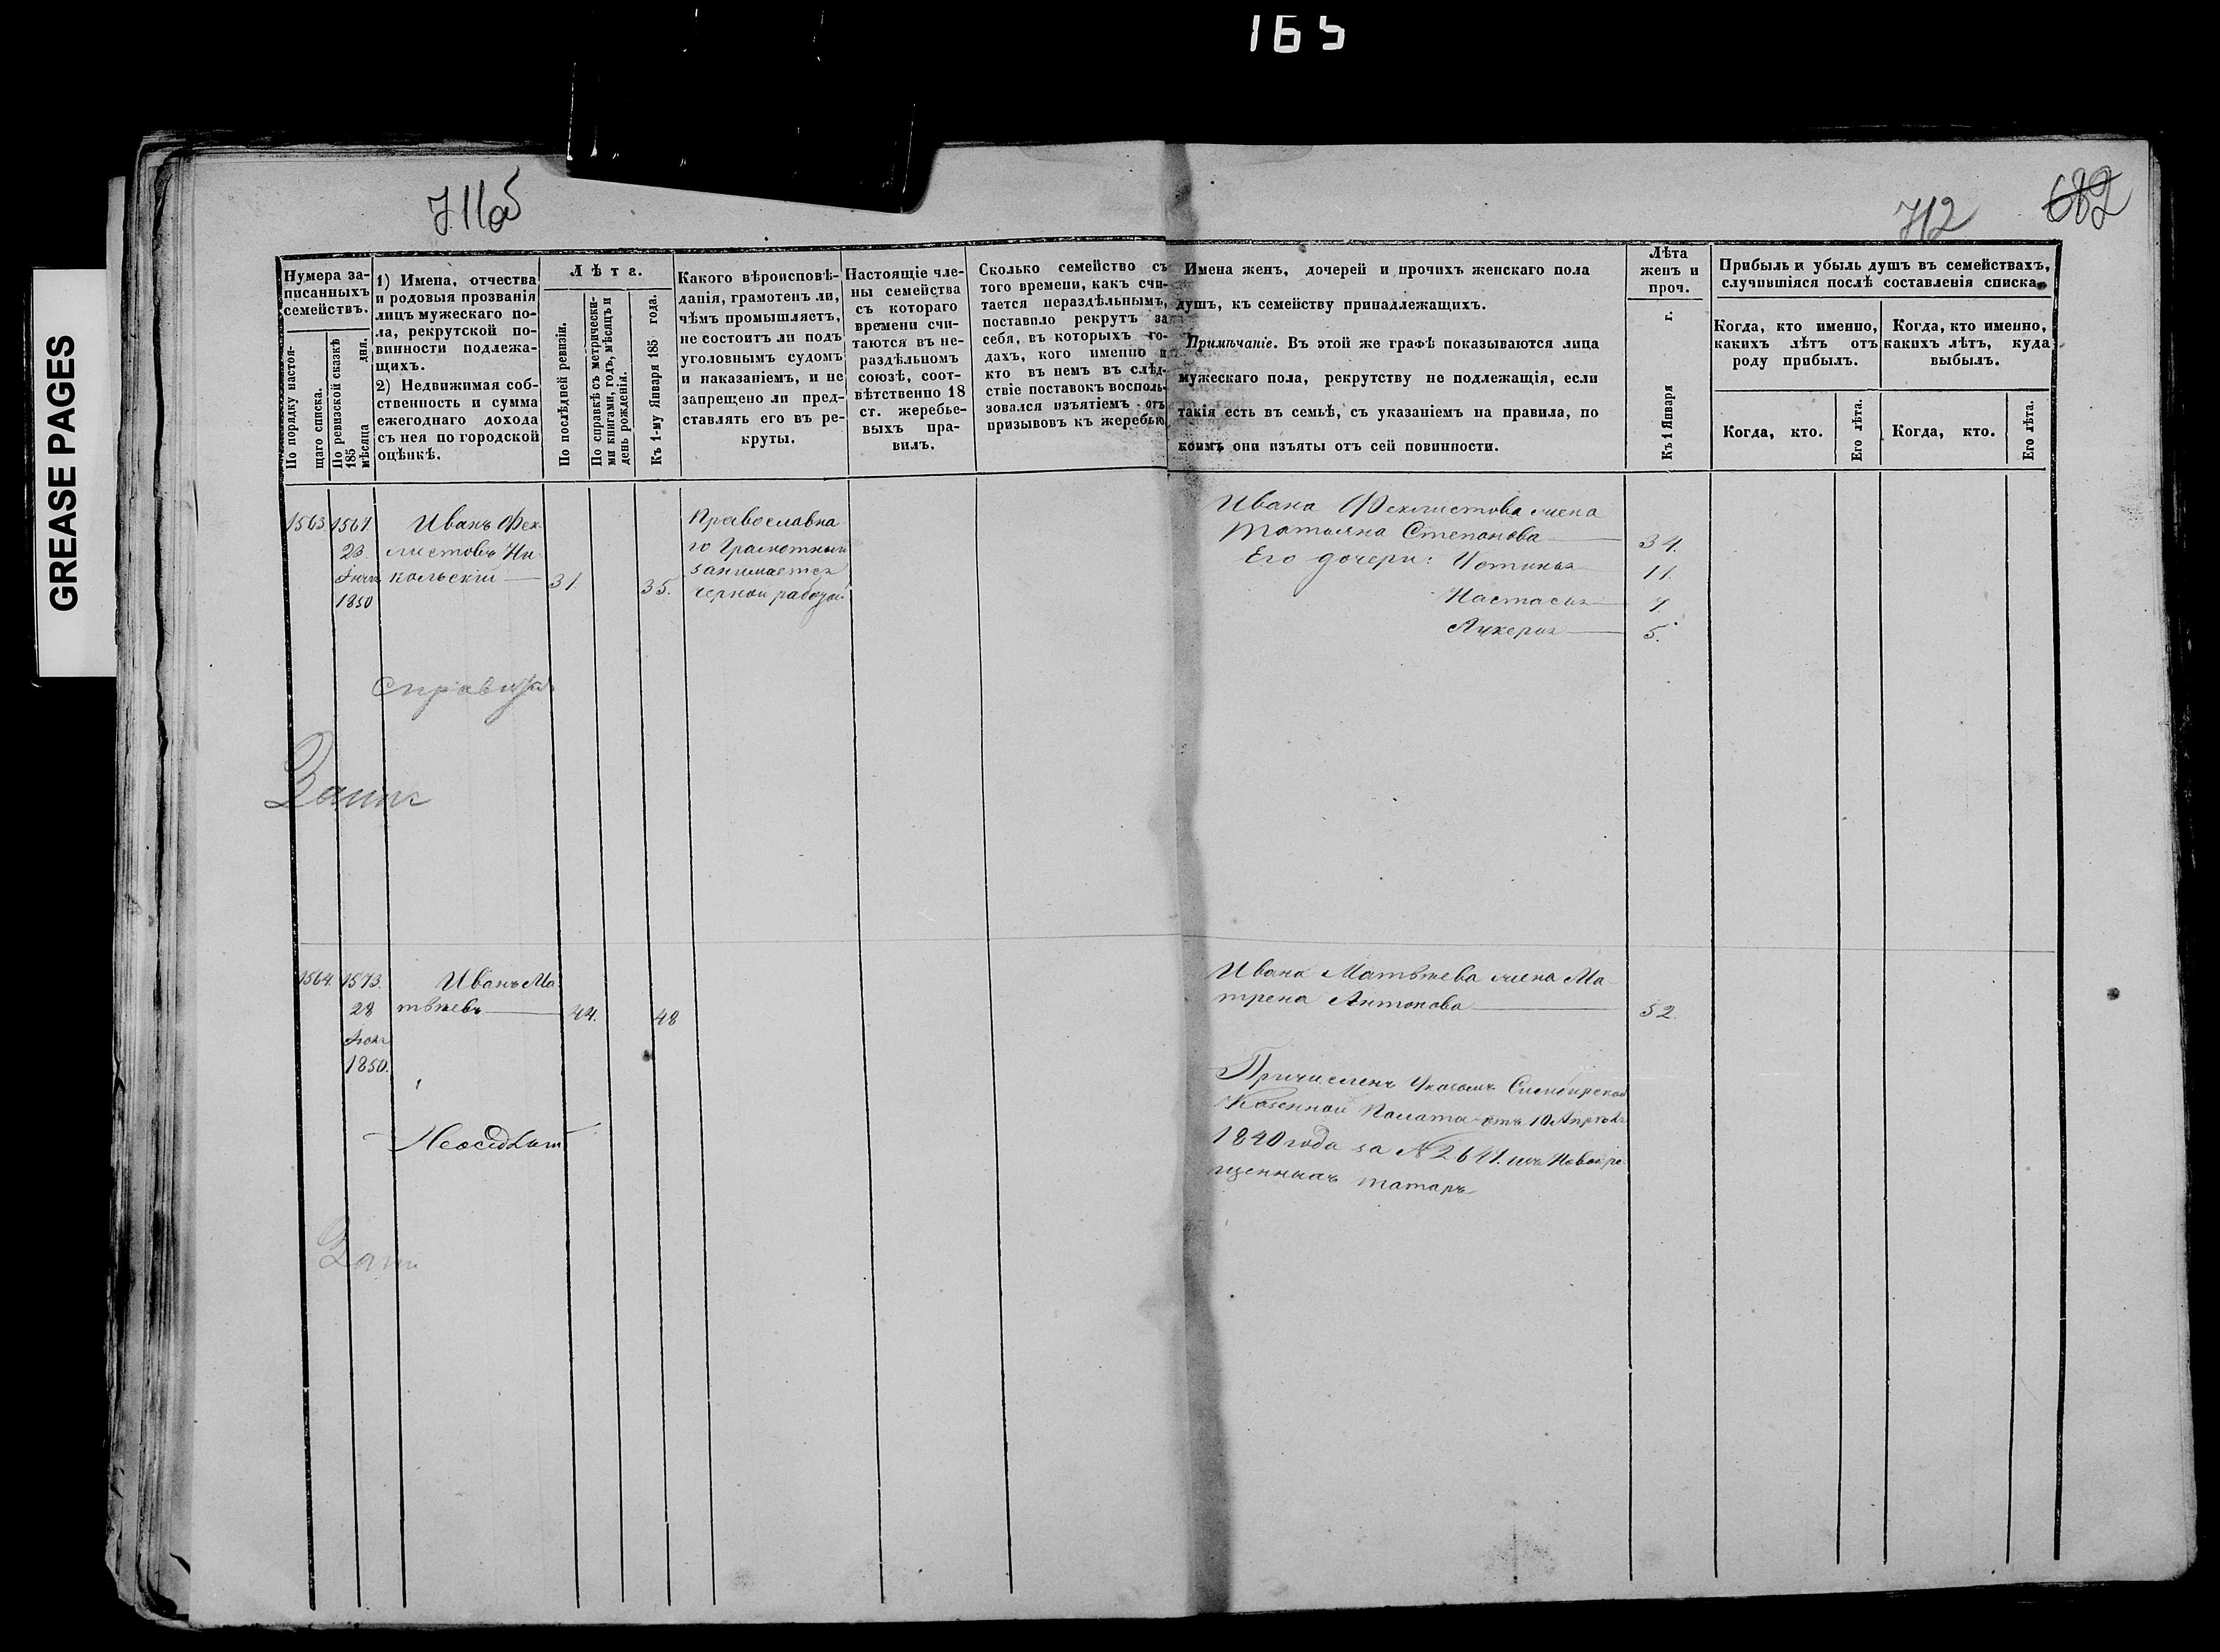 165
GREASE PAGES
711об
712
682
Нумера за-
писанныхъ
семействъ.
По порядку настоя-
щаго списка.
По ревизской сказкѣ
185 дня.
мѣсяца
1) Имена, отчества
и родовыя прозванія
лицъ мужескаго по-
ла, рекрутской по-
винности подлежа-
щихъ.
2) Недвижимая соб-
ственность и сумма
ежегоднаго дохода
съ нея по городской
оцѣнкѣ.
Лѣта.
По послѣдней ревизіи.
По справкѣ съ метрически-
ми книгами, годъ, мѣсяцъ и
день рожденія.
Къ 1-му Января 185 года.
Какого вѣроисповѣ-
данія, грамотенъ ли,
чѣмъ промышляетъ,
не состоитъ ли подъ
уголовнымъ судомъ
и наказаніемъ, и не
запрещено ли пред-
ставлять его въ ре-
круты.
Настоящіе чле-
ны семейства
съ котораго
времени счи-
таются въ не-
раздѣльномъ
союзѣ, соот-
вѣтственно 18
ст. жеребье-
выхъ пра-
вилъ.
Сколько семейство съ
того времени, какъ счи-
тается нераздѣльнымъ,
поставило рекрутъ за
себя, въ которыхъ го-
дахъ, кого именно и
кто въ немъ въ слѣд-
ствіе поставокъ восполь-
зовался изъятіемъ отъ
призывовъ къ жеребью
Имена женъ, дочерей и прочихъ женскаго пола
душъ, къ семейству принадлежащихъ.
Примѣчаніе. Въ этой же графѣ показываются лица
мужескаго пола, рекрутству не подлежащія, если
такія есть въ семьѣ, съ указаніемъ на правила, по
коимъ они изъяты отъ сей повинности.
Лѣта
женъ и
проч.
Къ 1 Января г.
Прибыль и убыль душъ въ семействахъ,
случившіяся послѣ составленія списка.
Когда, кто именно,
какихъ лѣтъ отъ
роду прибылъ.
Когда, кто именно,
какихъ лѣтъ, куда
выбылъ.
Когда, кто.
Его лѣта.
Когда, кто.
Его лѣта.
1563. 1567 Иванъ Фек-
23 листовъ Ни-
кольскій 31. 35.
1850
Православна
го Грамотный
занимается
черной работой
Ивана Феклистова жена
Татьяна Степанова 34.
Его дочери: Устинья 11.
Настасья 7.
Лукерья 5.
1564. 1573. Иванъ Ма-
28 твѣевъ 44. 48
1850.
Неоседлый
Ивана Матвѣева жена Ма-
трена Антонова 52.
Причисленъ Указомъ Симбирской
Казенной Палаты отъ 10 Апрѣля
1840 года за № 2647. изъ Новокре
щенныхъ татаръ